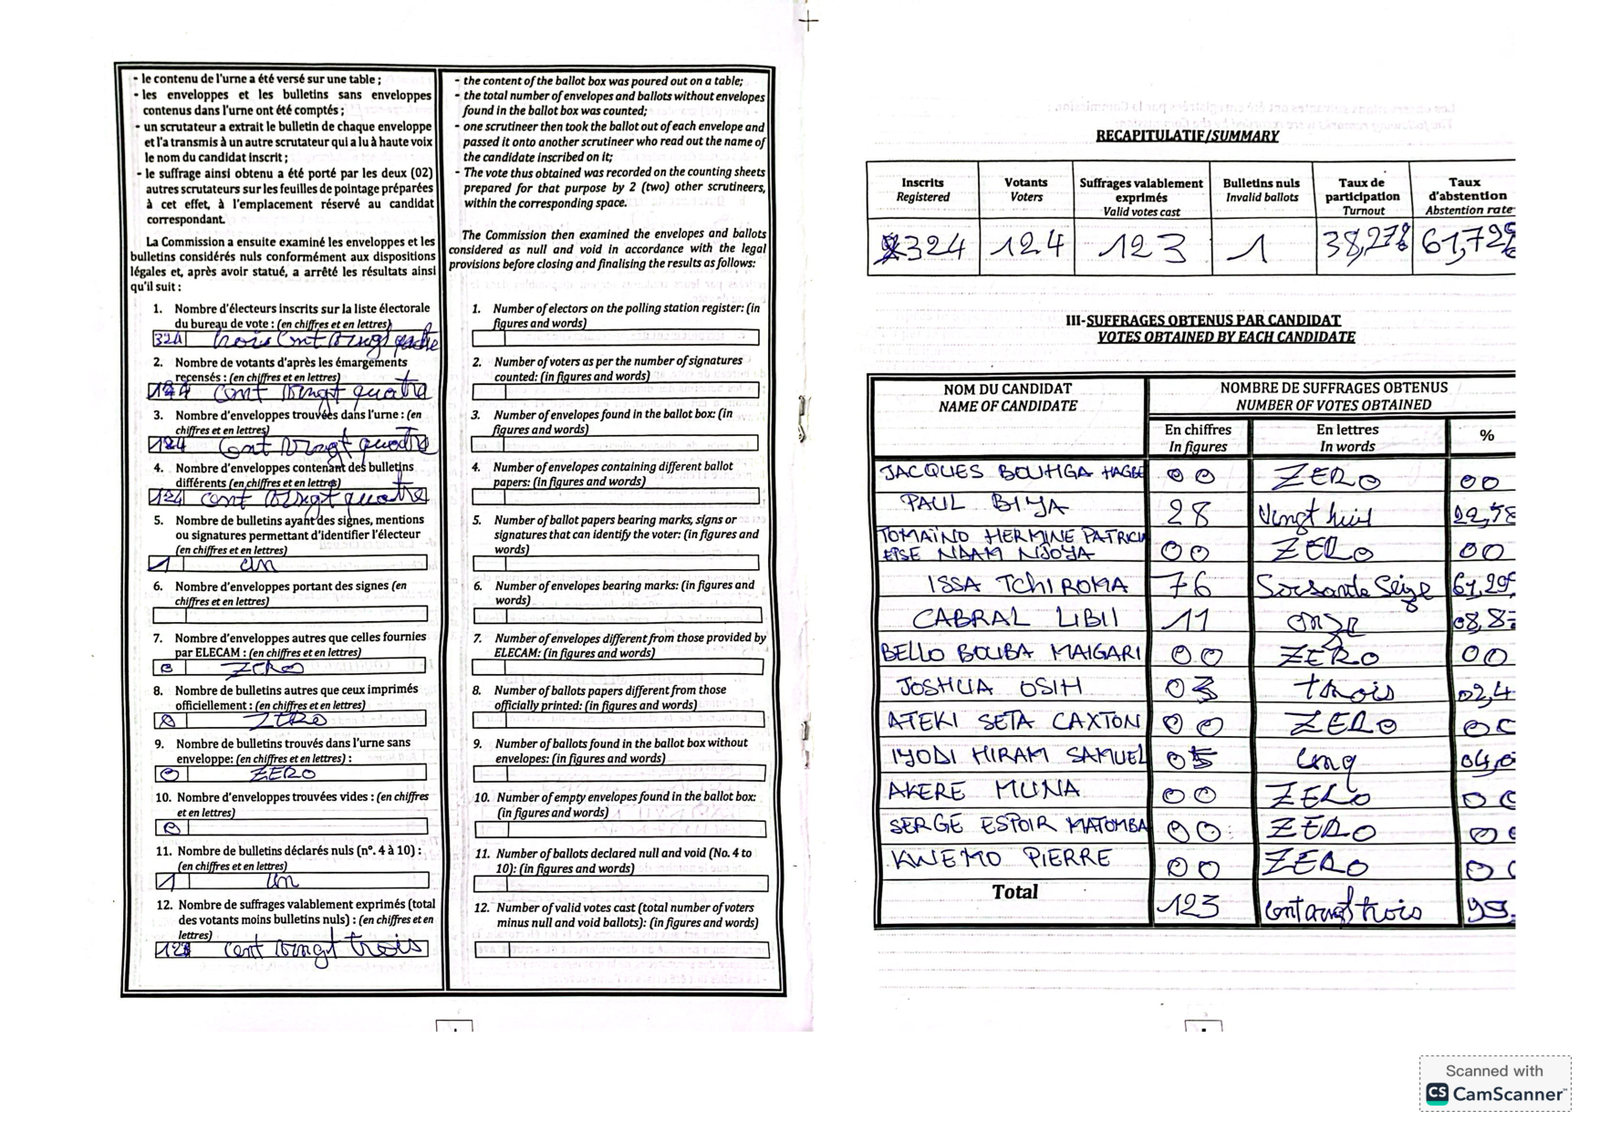 - le contenu de l'urne a été versé sur une table ;
- les enveloppes et les bulletins sans enveloppes
contenus dans l'urne ont été comptés ;
- un scrutateur a extrait le bulletin de chaque enveloppe
et l'a transmis à un autre scrutateur qui a lu à haute voix
le nom du candidat inscrit ;
- le suffrage ainsi obtenu a été porté par les deux (02)
autres scrutateurs sur les feuilles de pointage préparées
à cet effet, à l'emplacement réservé au candidat
correspondant.
La Commission a ensuite examiné les enveloppes et les
bulletins considérés nuls conformément aux dispositions
légales et, après avoir statué, a arrêté les résultats ainsi
qu'il suit :
1. Nombre d'électeurs inscrits sur la liste électorale
du bureau de vote : (en chiffres et en lettres)
324 trois cent vingt quatre
2. Nombre de votants d'après les émargements
recensés : (en chiffres et en lettres)
124 cent vingt quatre
3. Nombre d'enveloppes trouvées dans l'urne : (en
chiffres et en lettres)
124 cent vingt quatre
4. Nombre d'enveloppes contenant des bulletins
différents (en chiffres et en lettres)
124 cent vingt quatre
5. Nombre de bulletins ayant des signes, mentions
ou signatures permettant d'identifier l'électeur
(en chiffres et en lettres)
1 un
6. Nombre d'enveloppes portant des signes (en
chiffres et en lettres)
7. Nombre d'enveloppes autres que celles fournies
par ELECAM : (en chiffres et en lettres)
0 ZERO
8. Nombre de bulletins autres que ceux imprimés
officiellement : (en chiffres et en lettres)
0 ZERO
9. Nombre de bulletins trouvés dans l'urne sans
enveloppe: (en chiffres et en lettres) :
0 ZERO
10. Nombre d'enveloppes trouvées vides : (en chiffres
et en lettres)
0
11. Nombre de bulletins déclarés nuls (n°. 4 à 10) :
(en chiffres et en lettres)
1 un
12. Nombre de suffrages valablement exprimés (total
des votants moins bulletins nuls) : (en chiffres et en
lettres)
123 cent vingt trois
- the content of the ballot box was poured out on a table;
- the total number of envelopes and ballots without envelopes
found in the ballot box was counted;
- one scrutineer then took the ballot out of each envelope and
passed it onto another scrutineer who read out the name of
the candidate inscribed on it;
- The vote thus obtained was recorded on the counting sheets
prepared for that purpose by 2 (two) other scrutineers,
within the corresponding space.
The Commission then examined the envelopes and ballots
considered as null and void in accordance with the legal
provisions before closing and finalising the results as follows:
1. Number of electors on the polling station register: (in
figures and words)
2. Number of voters as per the number of signatures
counted: (in figures and words)
3. Number of envelopes found in the ballot box: (in
figures and words)
4. Number of envelopes containing different ballot
papers: (in figures and words)
5. Number of ballot papers bearing marks, signs or
signatures that can identify the voter: (in figures and
words)
6. Number of envelopes bearing marks: (in figures and
words)
7. Number of envelopes different from those provided by
ELECAM: (in figures and words)
8. Number of ballots papers different from those
officially printed: (in figures and words)
9. Number of ballots found in the ballot box without
envelopes: (in figures and words)
10. Number of empty envelopes found in the ballot box:
(in figures and words)
11. Number of ballots declared null and void (No. 4 to
10): (in figures and words)
12. Number of valid votes cast (total number of voters
minus null and void ballots): (in figures and words)
RECAPITULATIF/SUMMARY
Inscrits Votants Suffrages valablement Bulletins nuls Taux de Taux
Registered Voters exprimés Invalid ballots participation d'abstention
Valid votes cast Turnout Abstention rate
324 124 123 1 38,27% 61,72%
III-SUFFRAGES OBTENUS PAR CANDIDAT
VOTES OBTAINED BY EACH CANDIDATE
NOM DU CANDIDAT NOMBRE DE SUFFRAGES OBTENUS
NAME OF CANDIDATE NUMBER OF VOTES OBTAINED
En chiffres En lettres %
In figures In words
JACQUES BOUHGA HAGBE 00 ZERO 00
PAUL BIYA 28 Vingt huit 22,58
TOMAINO HERMINE PATRICIA
EPSE NDAM NJOYA 00 ZERO 00
ISSA TCHIROMA 76 Soixante Seize 61,29
CABRAL LIBII 11 onze 08,87
BELLO BOUBA MAIGARI 00 ZERO 00
JOSHUA OSIH 03 trois 02,4
ATEKI SETA CAXTON 00 ZERO 00
IYODI HIRAM SAMUEL 05 Cinq 04,0
AKERE MUNA 00 ZERO 00
SERGE ESPOIR MATOMBA 00 ZERO 00
KWEMO PIERRE 00 ZERO 00
Total 123 cent vingt trois 99.
Scanned with
CS CamScanner